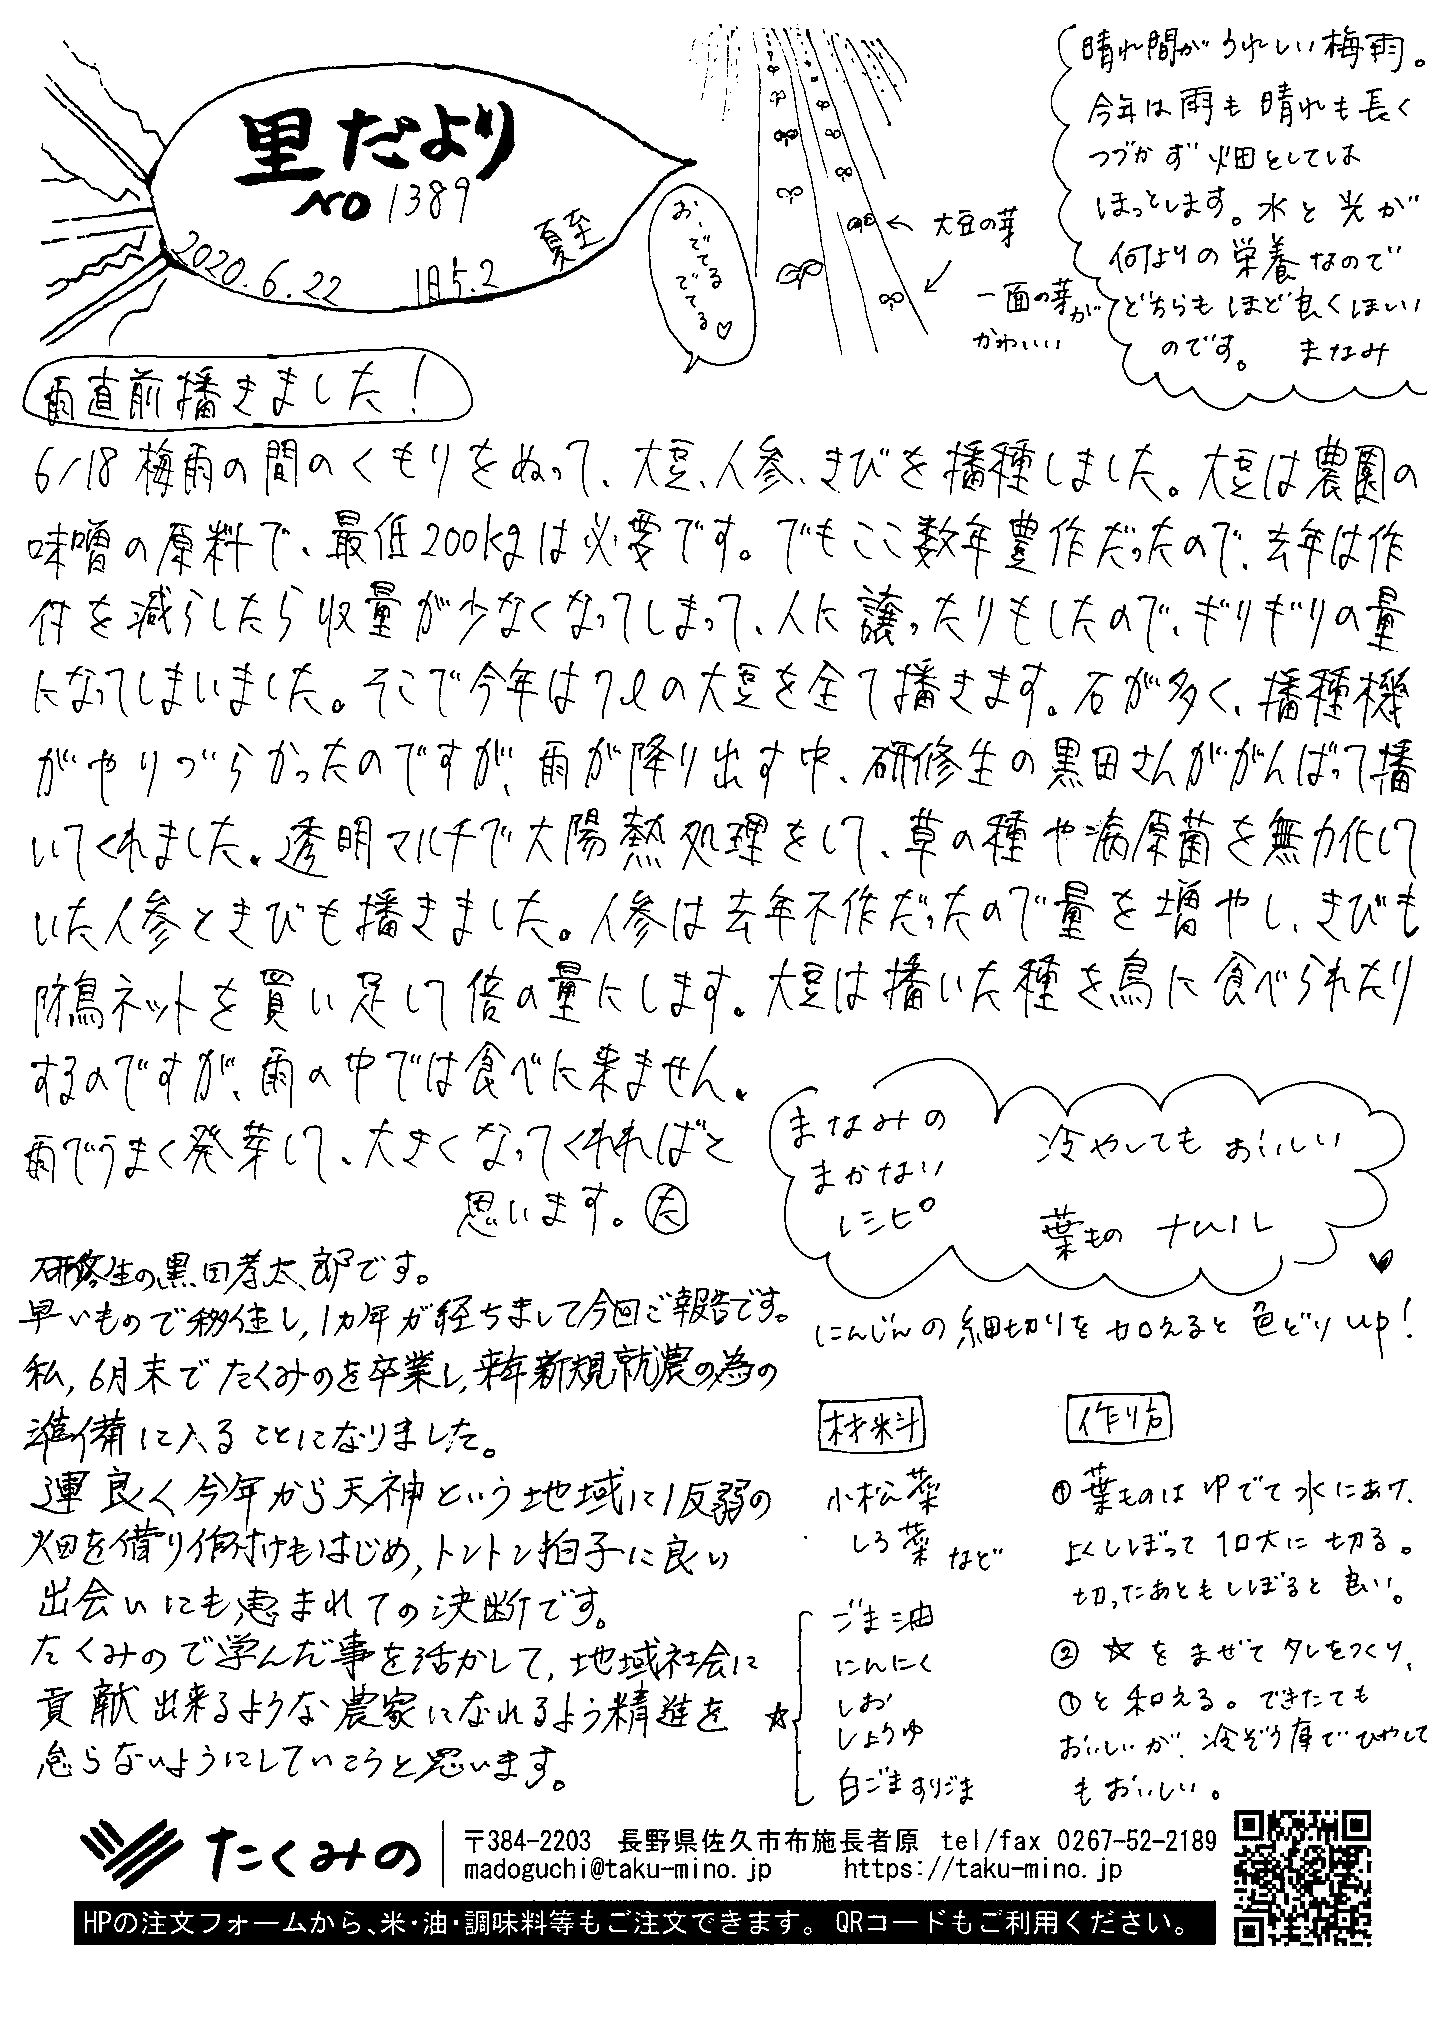 里だより
NO 1389
2020.6.22 旧5.2 夏至
お、でてる
でてる♡
← 大豆の芽
一面の芽が
かわいい
晴れ間がうれしい梅雨。
今年は雨も晴れも長く
つづかず畑としては
ほっとします。水と光が
何よりの栄養なので
どちらもほど良くほしい
のです。 まなみ
雨直前播きました!
6/18 梅雨の間のくもりをぬって、大豆、人参、きびを播種しました。大豆は農園の
味噌の原料で、最低200kgは必要です。でもここ数年豊作だったので、去年は作
付を減らしたら収量が少なくなってしまって、人に譲ったりもしたので、ギリギリの量
になってしまいました。そこで今年は7ℓの大豆を全て播きます。石が多く、播種機
がやりづらかったのですが、雨が降り出す中、研修生の黒田さんががんばって播
いてくれました。透明マルチで太陽熱処理をして、草の種や病原菌を無力化して
いた人参ときびも播きました。人参は去年不作だったので量を増やし、きびも
防鳥ネットを買い足して倍の量にします。大豆は播いた種を鳥に食べられたり
するのですが、雨の中では食べに来ません。
雨でうまく発芽して、大きくなってくれればと
思います。た
研修生の黒田孝太郎です。
早いもので移住し,1カ年が経ちまして今回ご報告です。
私,6月末でたくみのを卒業し,来年新規就農の為の
準備に入ることになりました。
運良く今年から天神という地域に1反弱の
畑を借り作付けもはじめ,トントン拍子に良い
出会いにも恵まれての決断です。
たくみので学んだ事を活かして,地域社会に
貢献出来るような農家になれるよう精進を
怠らないようにしていこうと思います。
まなみの
まかない
レシピ
冷やしてもおいしい
葉もの ナムル
にんじんの細切りを加えると色どりup!
材料
小松菜
しろ菜 など
☆
ごま油
にんにく
しお
しょうゆ
白ごますりごま
作り方
① 葉ものはゆでて水にあけ、
よくしぼって1口大に切る。
切ったあともしぼると良い。
② ☆をまぜてタレをつくり、
①と和える。できたても
おいしいが、冷ぞう庫でひやして
もおいしい。
たくみの
〒384-2203 長野県佐久市布施長者原 tel/fax 0267-52-2189
madoguchi@taku-mino.jp https://taku-mino.jp
HPの注文フォームから、米・油・調味料等もご注文できます。 QRコードもご利用ください。